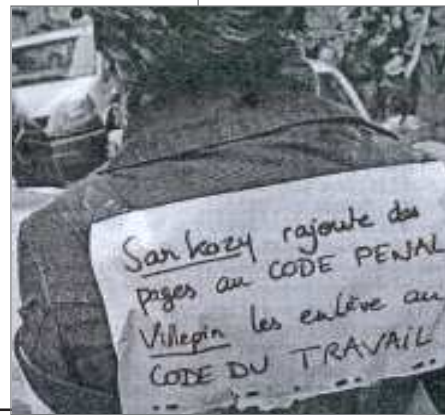 Sarkozy rajoute des
pages au CODE PENAL
Villepin les enlève au
CODE DU TRAVAIL